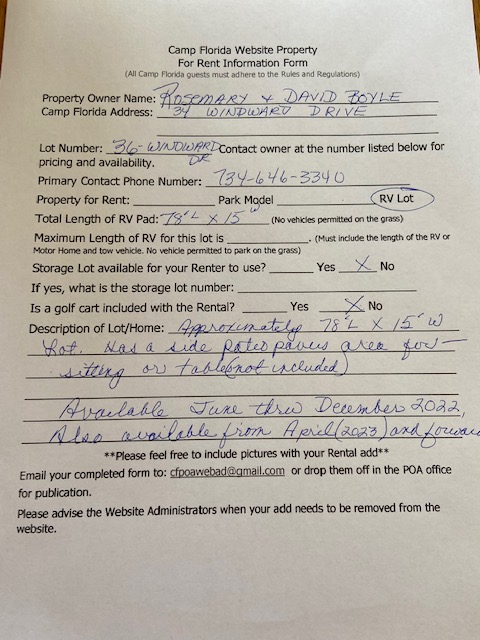 Camp Florida Website Property
For Rent Information Form
(All Camp Florida guests must adhere to the Rules and Regulations)
Property Owner Name: Rosemary & David Boyle
Camp Florida Address: 34 Windward Drive
Lot Number: 36-Windward Dr Contact owner at the number listed below for
pricing and availability.
Primary Contact Phone Number: 734-646-3340
Property for Rent: ________ Park Model ________ RV Lot
Total Length of RV Pad: 78'L X 15'W (No vehicles permitted on the grass)
Maximum Length of RV for this lot is ________. (Must include the length of the RV or
Motor Home and tow vehicle. No vehicle permitted to park on the grass)
Storage Lot available for your Renter to use? ______ Yes X No
If yes, what is the storage lot number: ________
Is a golf cart included with the Rental? ______ Yes X No
Description of Lot/Home: Approximately 78'L X 15'W
Lot. Has a side patio pavers area for
sitting or table (not included)
Available June thru December 2022,
Also available from April (2023) and forward
**Please feel free to include pictures with your Rental add**
Email your completed form to: cfpoawebad@gmail.com or drop them off in the POA office
for publication.
Please advise the Website Administrators when your add needs to be removed from the
website.